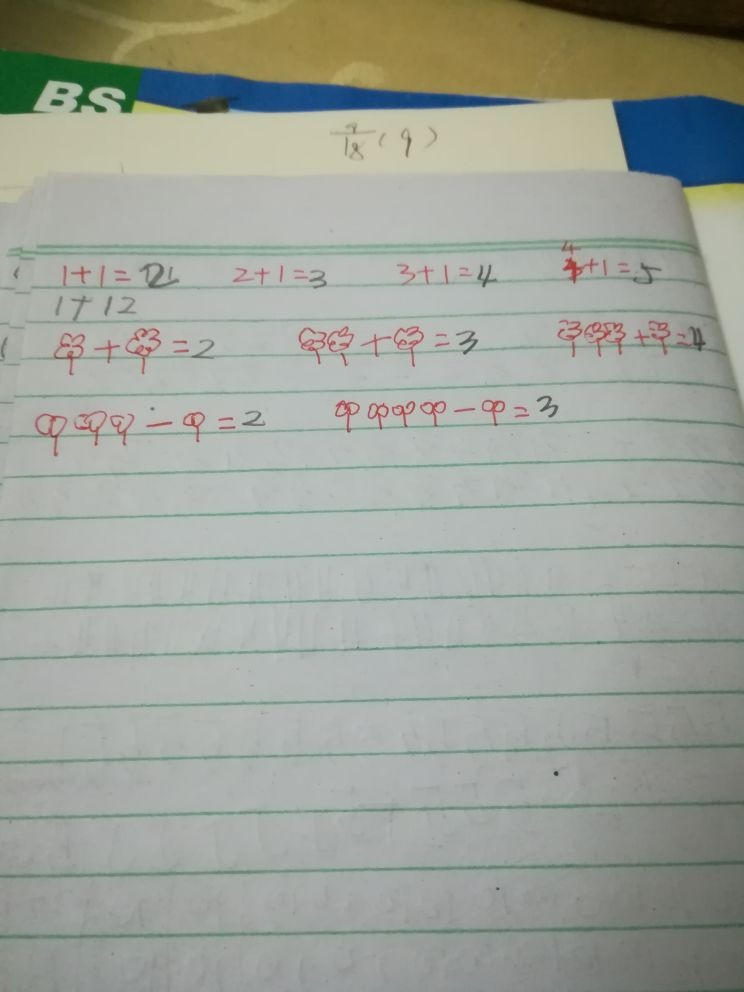 BS
9/18 (9)
1+1=2 2+1=3 3+1=4 4+1=5
1+12
+ =2 + =3 + =4
- =2 - =3